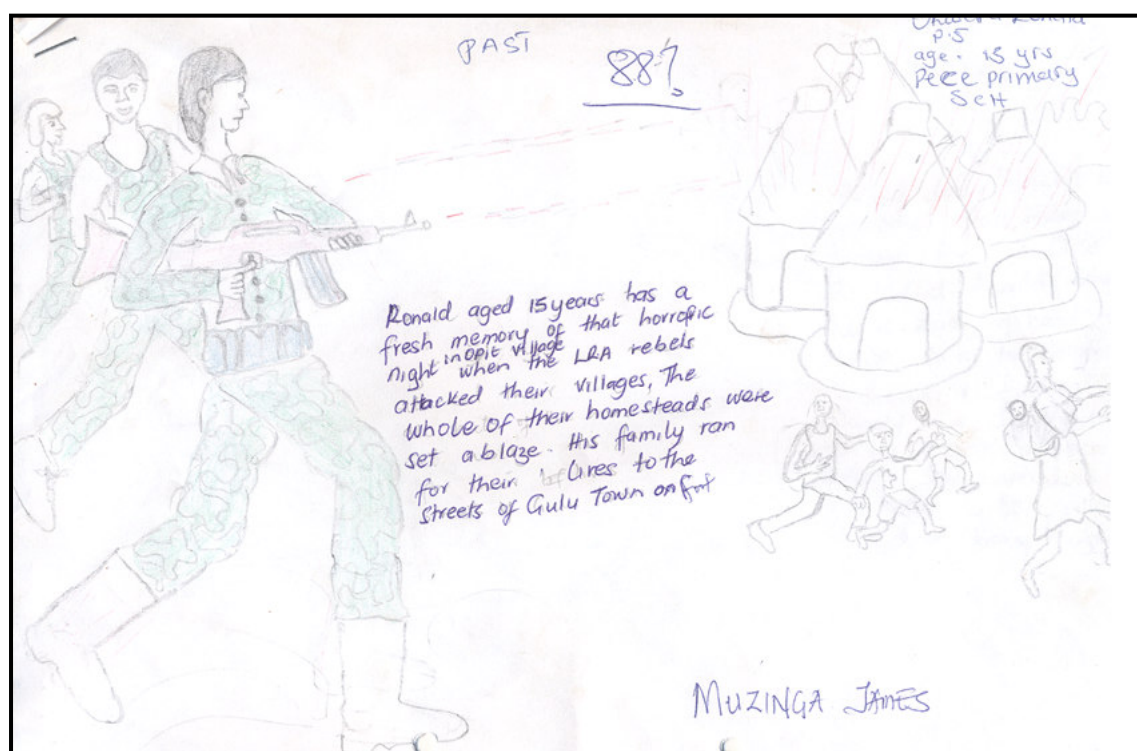 PAST
88%
P.5
age. 15 yrs
Pece primary
SCH
Ronald aged 15 years has a
fresh memory of that horrific
night in opit village when the LRA rebels
attacked their villages, The
whole of their homesteads were
set ablaze. His family ran
for their lives to the
streets of Gulu Town on foot
MUZINGA JAMES